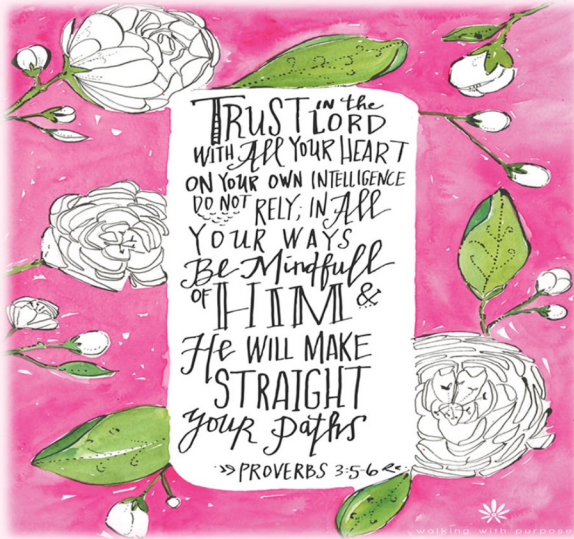 TRUST in the LORD
WITH All YOUR HEART
ON YOUR OWN INTELLIGENCE
DO NOT RELY; IN All
YOUR WAYS
Be Mindfull
OF HIM &
He WILL MAKE
STRAIGHT
your paths
PROVERBS 3:5-6
walking with purpose